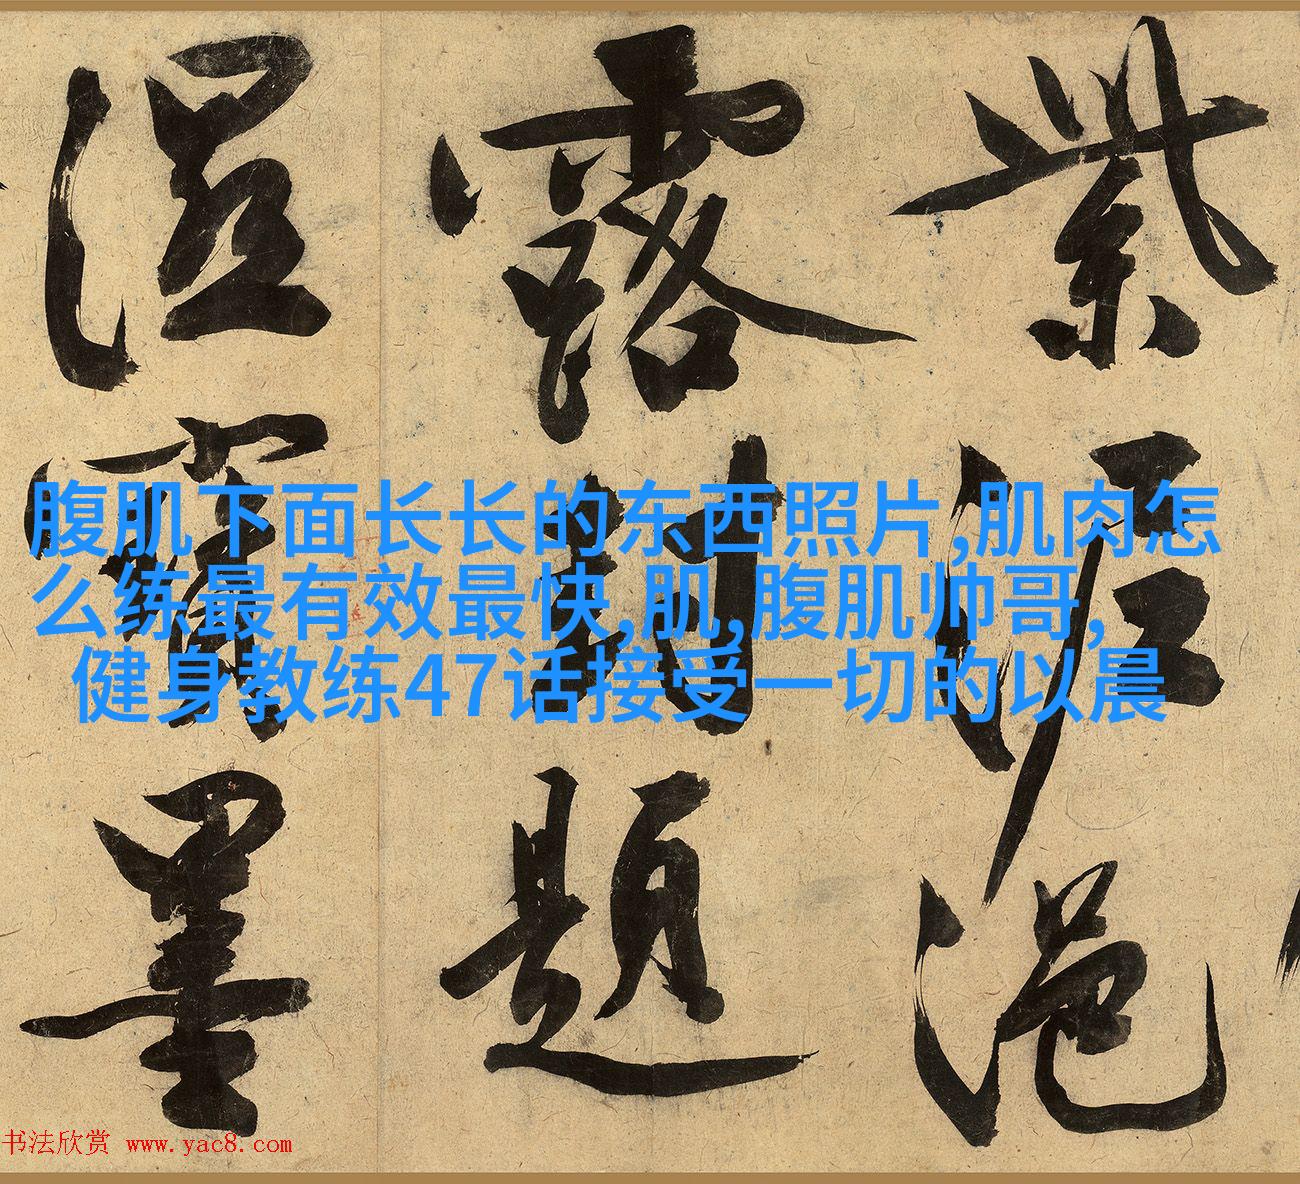 紫泥浥
露封題
濕寶墨
腹肌下面长长的东西照片,肌肉怎
么练最有效最快,肌,腹肌帅哥,
健身教练47话接受一切的以晨
书法欣赏 www.yac8.com